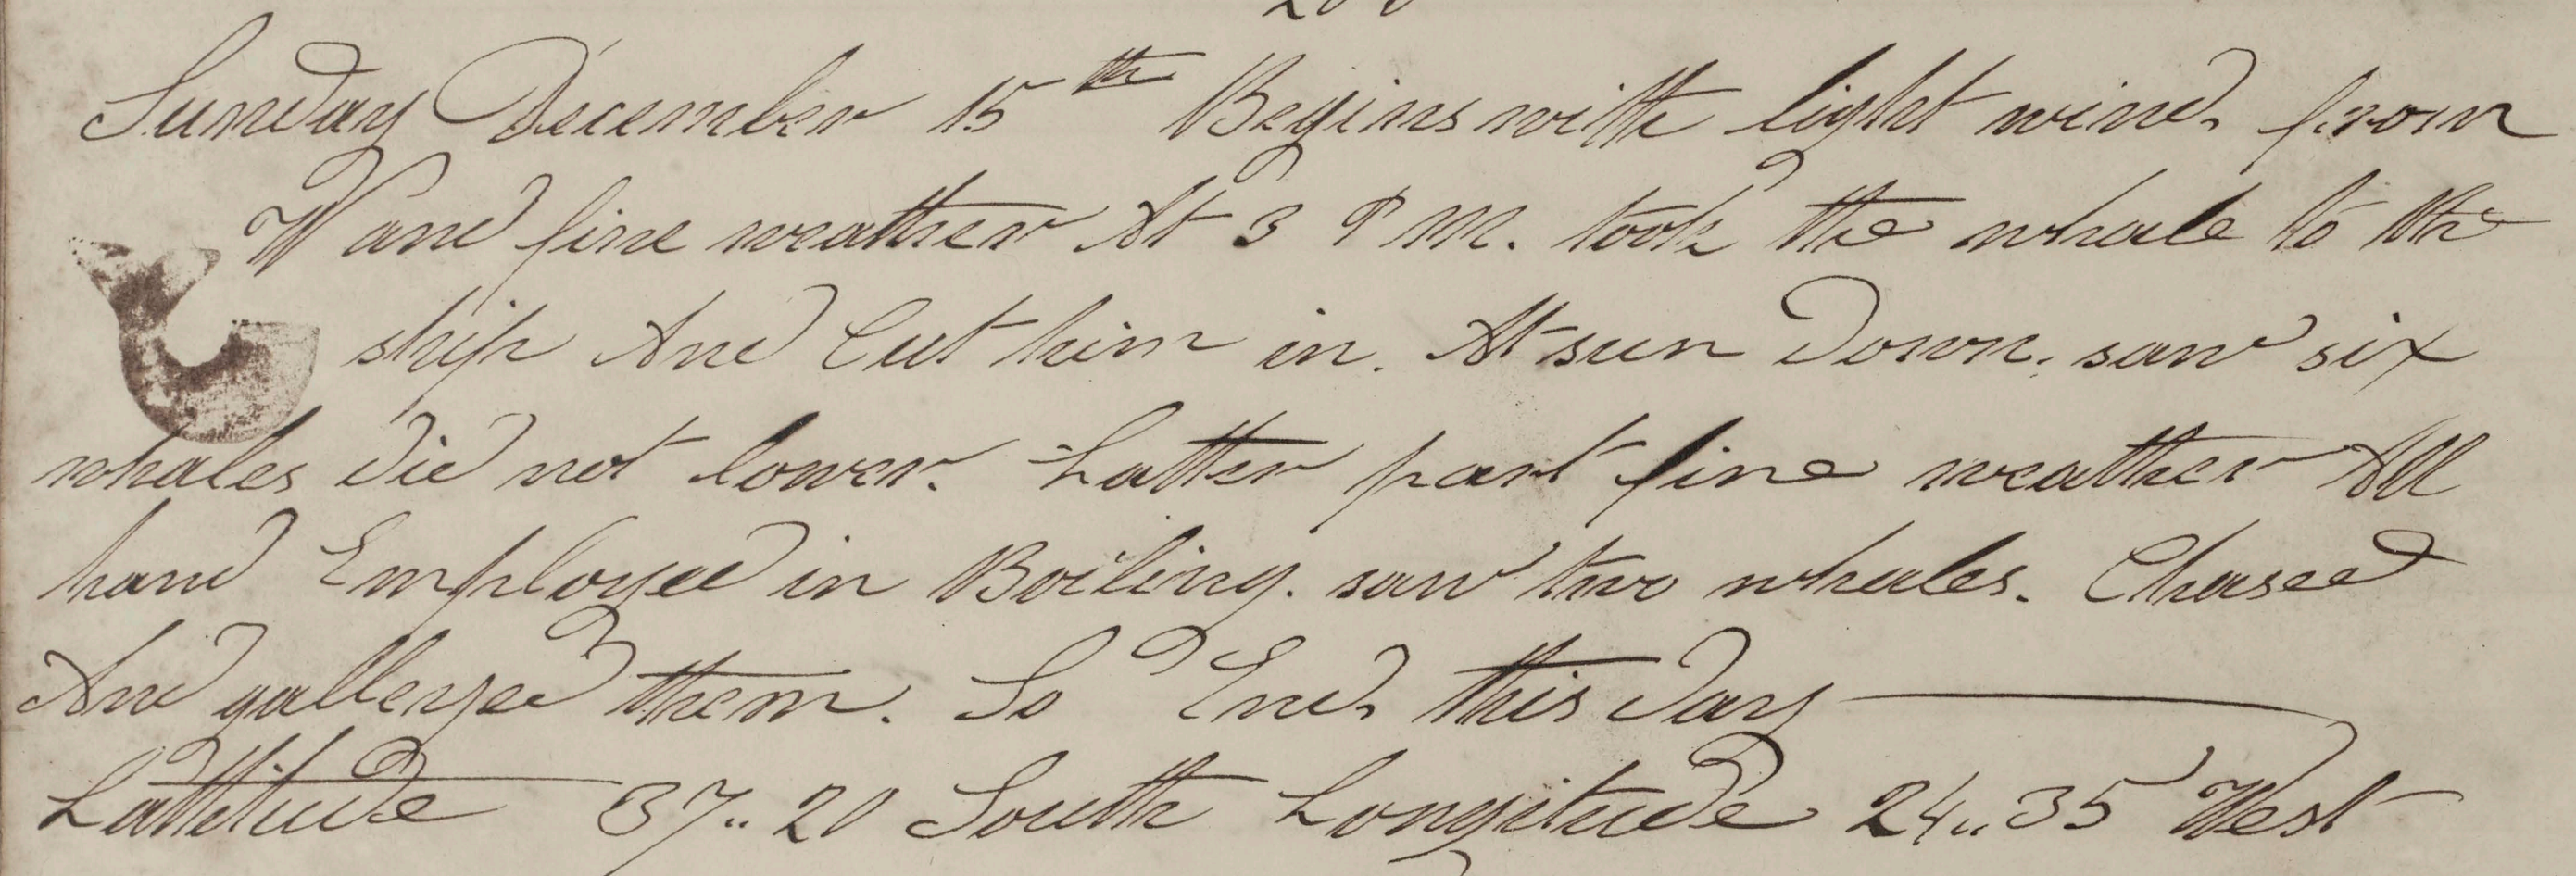 Sunday December 15th Begins with light winds from
W and fine weather At 3 P M. took the whale to the
ship And Cut him in. At sun down. saw six
whales did not lower. Latter part fine weather All
hand Employed in Boiling. saw two whales. Chased
And galleyed them. So Ends this day
Lattitude 37.. 20 South Longitude 24.. 35 West